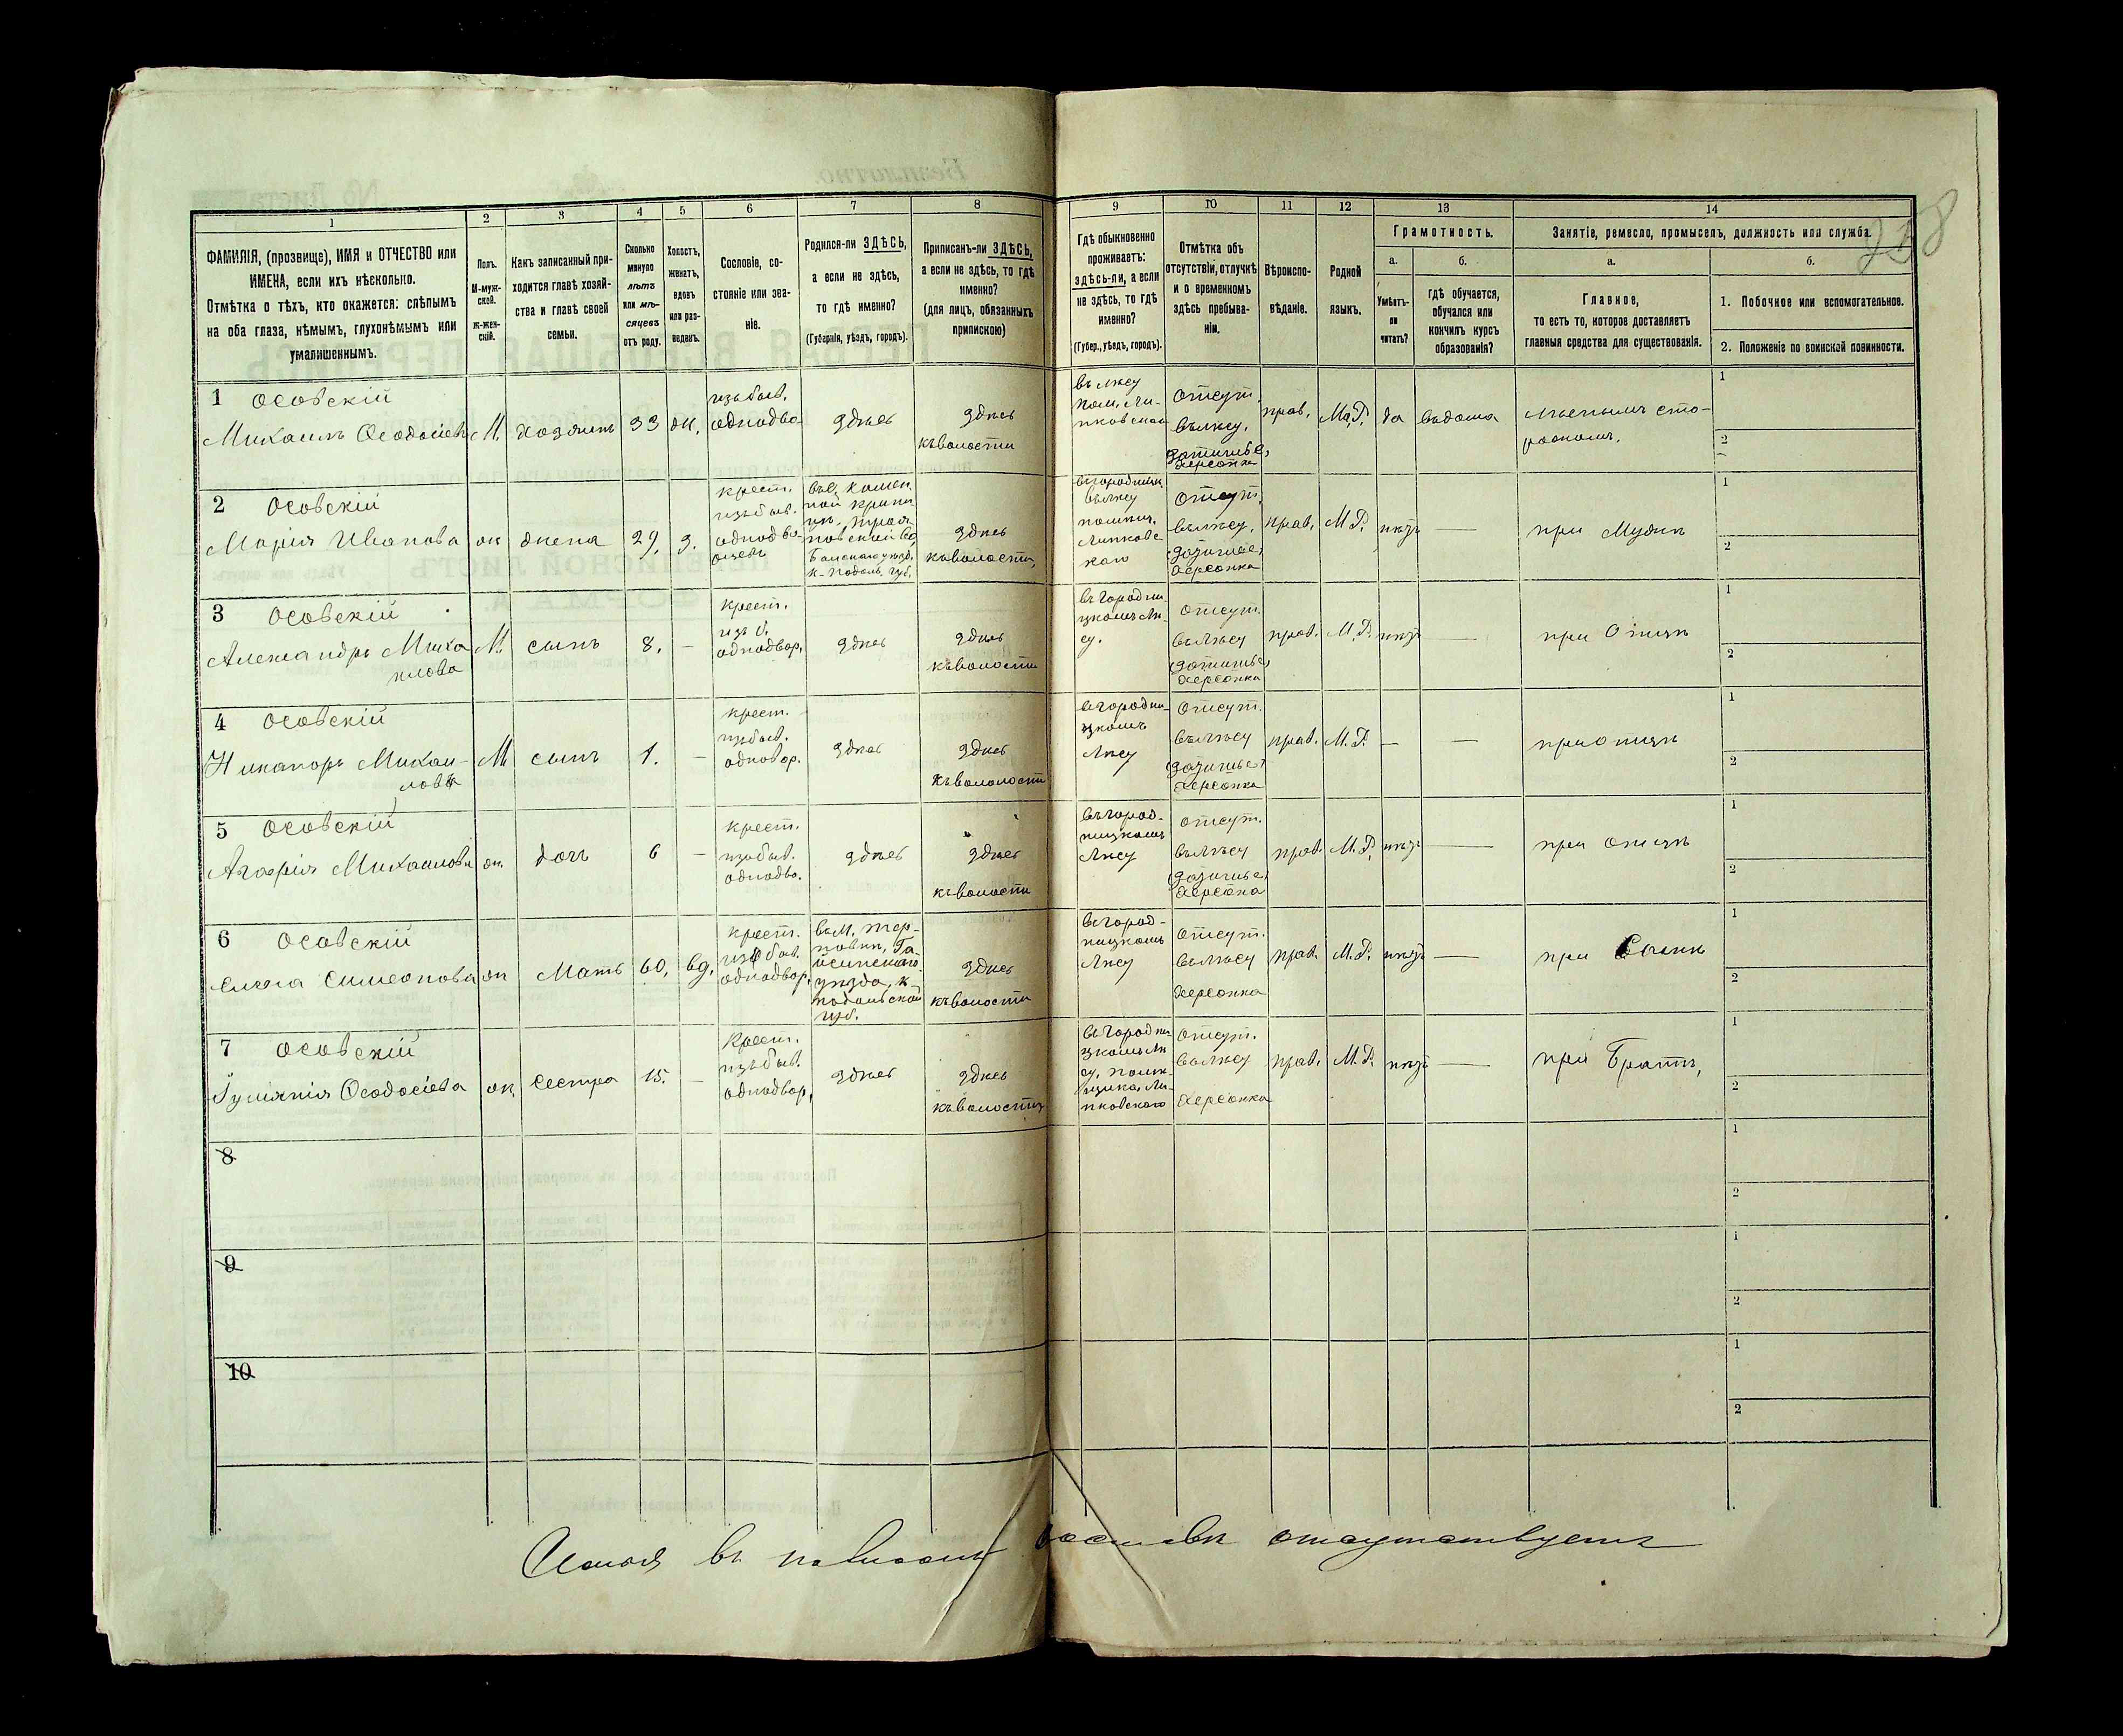 1 2 3 4 5 6 7 8 9 10 11 12 13 14
ФАМИЛІЯ, (прозвище), ИМЯ и ОТЧЕСТВО или
ИМЕНА, если ихъ нѣсколько.
Отмѣтка о тѣхъ, кто окажется: слѣпымъ
на оба глаза, нѣмымъ, глухонѣмымъ или
умалишеннымъ.
Полъ.
М-муж-
ской.
Ж-жен-
скій.
Какъ записанный при-
ходится главѣ хозяй-
ства и главѣ своей
семьи.
Сколько
минуло
лѣтъ
или мѣ-
сяцевъ
отъ роду.
Холостъ,
женатъ,
вдовъ
или раз-
веденъ.
Сословіе, со-
стояніе или зва-
ніе.
Родился-ли ЗДѢСЬ,
а если не здѣсь,
то гдѣ именно?
(Губернія, уѣздъ, городъ).
Приписанъ-ли ЗДѢСЬ,
а если не здѣсь, то гдѣ
именно?
(для лицъ, обязанныхъ
припискою)
Гдѣ обыкновенно
проживаетъ:
здѣсь-ли, а если
не здѣсь, то гдѣ
именно?
(Губер., уѣздъ, городъ).
Отмѣтка объ
отсутствіи, отлучкѣ
и о временномъ
здѣсь пребыва-
ніи.
Вѣроиспо-
вѣданіе.
Родной
языкъ.
Грамотность.
а.
Умѣетъ-
ли
читать?
б.
гдѣ обучается,
обучался или
кончилъ курсъ
образованія?
Занятіе, ремесло, промыселъ, должность или служба.
а.
Главное,
то есть то, которое доставляетъ
главныя средства для существованія.
б.
1. Побочное или вспомогательное.
2. Положеніе по воинской повинности.
1 Осовскій
Михаилъ Ѳеодосіевъ
М.
хозяинъ
33
жн.
изъ быв.
однодво
здѣсь
здѣсь
къ волости
въ лѣсу
пом. Ли-
пковскаго
отсут.
въ лѣсу,
Херсонка
прав.
М.Р.
да
въ дома
лѣснымъ сто-
рожомъ.
1
2
2 Осовскій
Марія Иванова
ж
жена
29.
з.
крест.
изъ быв.
однодво-
рцевъ
въ с. Камен
ной Крини
цѣ, Троя-
новской во
Балтскаго уѣзд.
К-Подоль. губ.
здѣсь
къ волости,
въ городниц
въ лѣсу
помѣщ.
Липковс
каго
отсут.
въ лѣсу,
Херсонка
прав.
М.Р.
нѣтъ
—
при Мужѣ
1
2
3 Осовскій
Александръ Миха
илова
М.
сынъ
8.
—
крест.
изъ б.
однодвор.
здѣсь
здѣсь
къ волости
въ городни
цкомъ лѣ-
су.
отсут.
въ лѣсу
Херсонка
прав.
М.Р.
нѣтъ
—
при Отцѣ
1
2
4 Осовскій
Никаноръ Михаи-
лова
М
сынъ
1.
—
крест.
изъ быв.
однодвор.
здѣсь
здѣсь
къ вололости
въ городни-
цкомъ
лѣсу
отсут.
въ лѣсу
Херсонка
прав.
М.Р.
—
—
при отцѣ
1
2
5 Осовскій
Агафія Михаилова
ж.
дочь
6
—
крест.
изъ быв.
однодво.
здѣсь
здѣсь
къ волости
въ город-
ницкомъ
лѣсу
отсут.
въ лѣсу
Херсонка
прав.
М.Р.
нѣтъ
—
при отцѣ
1
2
6 Осовскій
Симеонова
ж
Мать
60.
вд.
крест.
изъ быв.
однодвор.
въ м. Тер-
новкѣ, Га-
йсинскаго
уѣзда, К-
подольской
губ.
здѣсь
къ волости
въ город-
ницкомъ
лѣсу
отсут.
въ лѣсу
Херсонка
прав.
М.Р.
нѣтъ
—
при Сынѣ
1
2
7 Осовскій
Ѳеодосіева
ж.
сестра
15.
—
Крест.
изъ быв.
однодвор.
здѣсь
здѣсь
къ волости
въ городни
цкомъ лѣ
су, помѣ-
щика Ли-
пковскаго
отсут.
въ лѣсу
Херсонка
прав.
М.Р.
нѣтъ
—
при Братѣ,
1
2
8
1
2
9
1
2
10
1
2
Семья въ полномъ составѣ отсутствуетъ